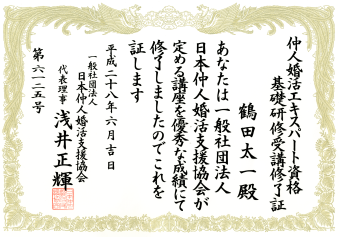 仲人婚活エキスパート資格
基礎研修受講修了証
鶴田太一殿
あなたは一般社団法人
日本仲人婚活支援協会が
定める講座を優秀な成績にて
修了しましたのでこれを
証します
平成二十八年六月吉日
一般社団法人
日本仲人婚活支援協会
代表理事 浅井正輝
第六一二五号